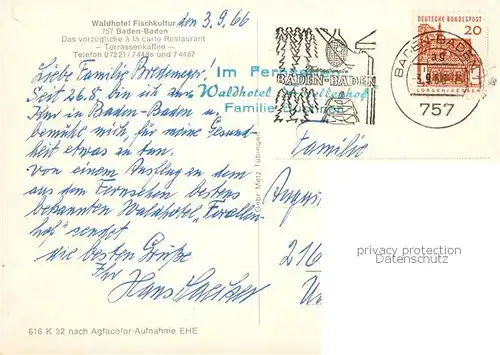 Waldhotel Fischkultur
757 Baden-Baden
Das vorzügliche à la carte Restaurant
- Terrassenkaffee -
Telefon 07221/74486 und 74487
den 3.9.66
Liebe Familie
Seit 26.8. bin ich zur
Kur in Baden-Baden u.
bemüht mich, für meine Gesund-
heit etwas zu tun.
Von einem Ausflug an dem
aus dem Fernsehen bestens
bekannten Waldhotel "Forellen-
hof" sendet
die besten Grüße
Ihr
Hans
Im
Waldhotel Forellenhof
Familie
BADEN-BADEN
DEUTSCHE BUNDESPOST
20
LORSCH/HESSEN
BADEN-BADEN 1
ag
3.9.66
757
Gebr. Metz Tübingen
Familie
216
privacy protection
Datenschutz
616 K 32 nach Agfacolor-Aufnahme EHE